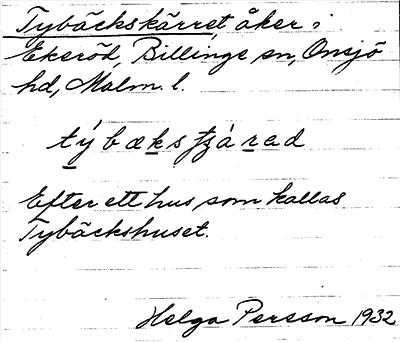 Tybäckskärret, åker i
Ekeröd, Billinge sn, Onsjö
hd, Malm. l.
Efter ett hus, som kallas
Tybäckshuset.
Helga Persson 1932